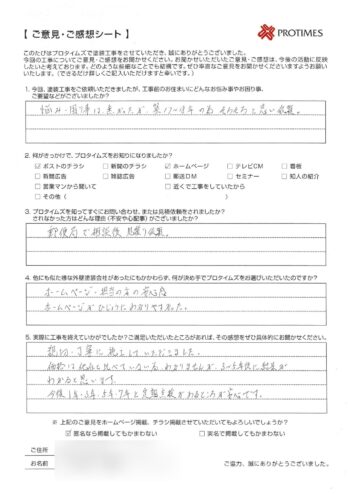 【 ご意見・ご感想シート 】
PROTIMES
このたびはプロタイムズで塗装工事をさせていただき、誠にありがとうございました。
今回の工事についてご意見・ご感想をお聞かせください。お聞かせいただいたご意見・ご感想は、今後の活動に反映
したいと考えております。どのような些細なことでも結構です。ぜひ率直なご意見をお聞かせくださいますようお願い
いたします。(できるだけ詳しくご記入いただけますと幸いです。)
1. 今回、塗装工事をご依頼いただきましたが、工事前のお住まいにどんなお悩み事やお困り事、
ご要望などがございましたか?
悩み・困り事は無かったが、築17〜8年の為 そろそろと思い依頼。
2. 何がきっかけで、プロタイムズをお知りになりましたか?
☑ ポストのチラシ □ 新聞のチラシ ☑ ホームページ □ テレビCM □ 看板
□ 新聞広告 □ 雑誌広告 □ 郵送DM □ セミナー □ 知人の紹介
□ 営業マンから聞いて □ 近くで工事をしていたから
□ その他 ( )
3. プロタイムズを知ってすぐにお問い合わせ、または見積依頼をされましたか?
されなかった方はどんな理由(不安や心配事)がございましたか?
郵便局で相談後 見積り依頼。
4. 他にも似た様な外壁塗装会社があったにもかかわらず、何が決め手でプロタイムズをお選びいただいたのですか?
ホームページ・担当の方の安心感
ホームページがひじょうにわかりやすかった。
5. 実際に工事を終えていかがでしたか?ご満足いただいたところがあれば、その感想をぜひ具体的にお聞かせください。
親切・丁寧に施工していただきました。
価格は他社と比べていない為 わかりませんが、
わかると思います。
今後1年・3年・5年・7年と定期点検があるところが安心です。
※ 上記のご意見をホームページ掲載、チラシ掲載させていただいてもよろしいでしょうか?
☑ 匿名なら掲載してもかまわない □ 実名で掲載してもかまわない
ご住所
お名前
ご協力、誠にありがとうございました。